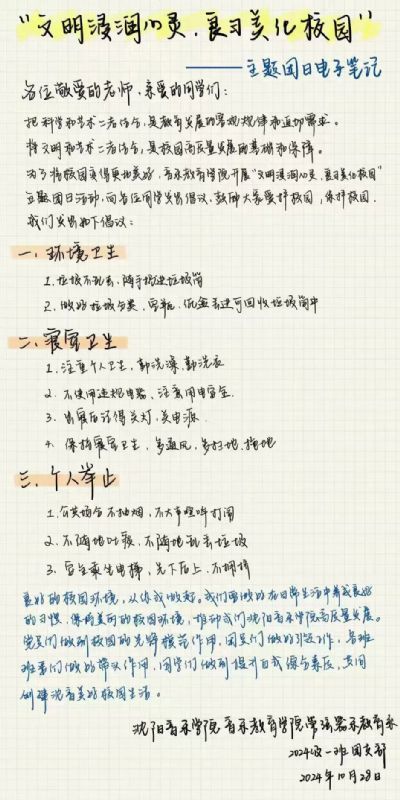 “文明浸润心灵，良习美化校园”
——主题团日电子笔记
各位敬爱的老师、亲爱的同学们：
把科学和艺术二者结合，是教育发展的客观规律和迫切需求。
将文明和艺术二者结合，是校园高质量发展的基础和保障。
为了将校园变得更加美好，音乐教育学院开展“文明浸润心灵，良习美化校园”
主题团日活动，向各位同学发出倡议，鼓励大家爱护校园，保护校园。
我们发出如下倡议：
一、环境卫生
1、垃圾不乱丢，随手扔进垃圾筒
2、做好垃圾分类，空瓶、纸盒丢进可回收垃圾筒中
二、寝室卫生
1、注重个人卫生，勤洗澡、勤洗衣
2、不使用违规电器，注意用电安全.
3、出寝后记得关灯，关电源.
4、保持寝室卫生，多通风，多扫地、拖地
三、个人举止
1、公共场合不抽烟，不大声喧哗打闹
2、不随地吐痰，不随地乱丢垃圾
3、安全乘坐电梯，先下后上，不拥挤
良好的校园环境，从你我做起，我们要做好在日常生活中养成良好
的习惯，保持美丽的校园环境，推动我们沈阳音乐学院高质量发展。
党员们做到校园的先锋模范作用，团员们做好引领工作，各班
班委们做好带头作用，同学们做到提升自我修养与素质，共同
创建沈音美好校园生活。
沈阳音乐学院音乐教育学院管弦器乐教育系
2024级一班团支部
2024年10月28日